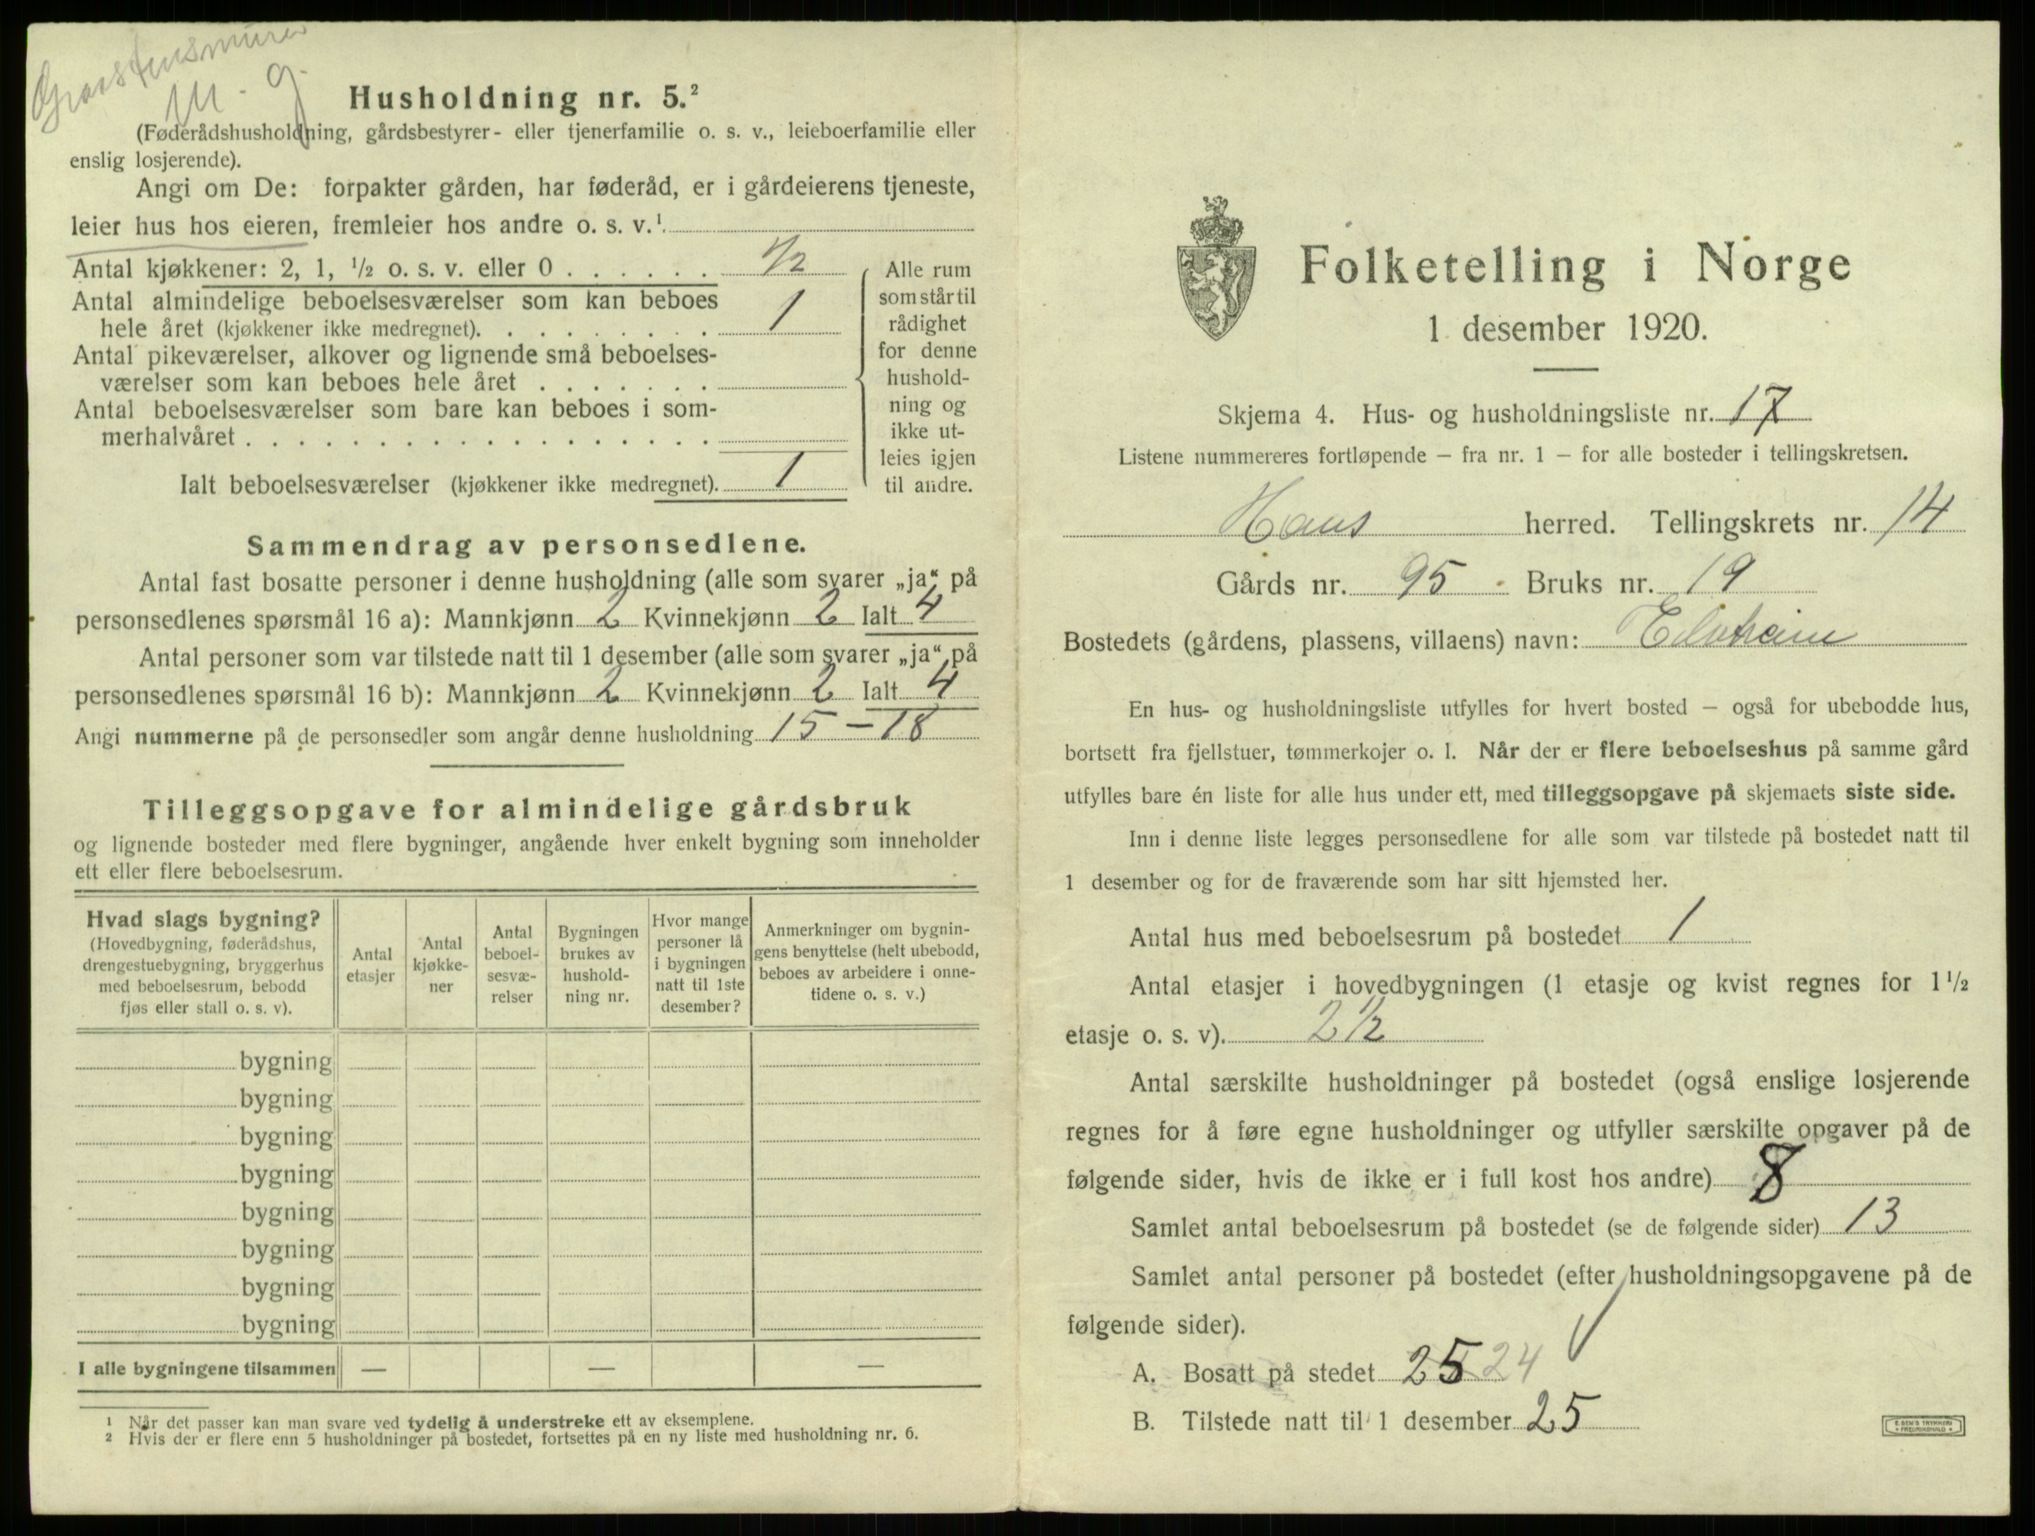 M. g.
Husholdning nr. 5.²
(Føderådshusholdning, gårdsbestyrer- eller tjenerfamilie o. s. v., leieboerfamilie eller
enslig losjerende).
Angi om De: forpakter gården, har føderåd, er i gårdeierens tjeneste,
leier hus hos eieren, fremleier hos andre o. s. v.¹
Antal kjøkkener: 2, 1, ½ o. s. v. eller 0 . . . . . . ½
Antal almindelige beboelsesværelser som kan beboes
hele året (kjøkkener ikke medregnet). . . . . . . . . 1
Antal pikeværelser, alkover og lignende små beboelses-
værelser som kan beboes hele året . . . . . . .
Antal beboelsesværelser som bare kan beboes i som-
merhalvåret . . . . . . . . . . . . . . . . . .
Ialt beboelsesværelser (kjøkkener ikke medregnet). 1
Alle rum
som står til
rådighet
for denne
hushold-
ning og
ikke ut-
leies igjen
til andre.
Sammendrag av personsedlene.
Antal fast bosatte personer i denne husholdning (alle som svarer „ja“ på
personsedlenes spørsmål 16 a): Mannkjønn 2 Kvinnekjønn 2 Ialt 4
Antal personer som var tilstede natt til 1 desember (alle som svarer „ja“ på
personsedlenes spørsmål 16 b): Mannkjønn 2 Kvinnekjønn 2 Ialt 4
Angi nummerne på de personsedler som angår denne husholdning 15 – 18
Tilleggsopgave for almindelige gårdsbruk
og lignende bosteder med flere bygninger, angående hver enkelt bygning som inneholder
ett eller flere beboelsesrum.
Hvad slags bygning?
(Hovedbygning, føderådshus,
drengestuebygning, bryggerhus
med beboelsesrum, bebodd
fjøs eller stall o. s. v).
Antal
etasjer
Antal
kjøkke-
ner
Antal
beboel-
sesvæ-
relser
Bygningen
brukes av
hushold-
ning nr.
Hvor mange
personer lå
i bygningen
natt til 1ste
desember?
Anmerkninger om bygnin-
gens benyttelse (helt ubebodd,
beboes av arbeidere i onne-
tidene o. s. v.)
bygning
bygning
bygning
bygning
bygning
bygning
bygning
bygning
I alle bygningene tilsammen — — —
¹ Når det passer kan man svare ved tydelig å understreke ett av eksemplene.
² Hvis der er flere enn 5 husholdninger på bostedet, fortsettes på en ny liste med husholdning nr. 6.
Folketelling i Norge
1 desember 1920.
Skjema 4. Hus- og husholdningsliste nr. 17
Listene nummereres fortløpende – fra nr. 1 – for alle bosteder i tellingskretsen.
Haus herred. Tellingskrets nr. 14
Gårds nr. 95 Bruks nr. 19
Bostedets (gårdens, plassens, villaens) navn:
En hus- og husholdningsliste utfylles for hvert bosted – også for ubebodde hus,
bortsett fra fjellstuer, tømmerkojer o. l. Når der er flere beboelseshus på samme gård
utfylles bare én liste for alle hus under ett, med tilleggsopgave på skjemaets siste side.
Inn i denne liste legges personsedlene for alle som var tilstede på bostedet natt til
1 desember og for de fraværende som har sitt hjemsted her.
Antal hus med beboelsesrum på bostedet 1
Antal etasjer i hovedbygningen (1 etasje og kvist regnes for 1½
etasje o. s. v). 2½
Antal særskilte husholdninger på bostedet (også enslige losjerende
regnes for å føre egne husholdninger og utfyller særskilte opgaver på de
følgende sider, hvis de ikke er i full kost hos andre) 8
Samlet antal beboelsesrum på bostedet (se de følgende sider) 13
Samlet antal personer på bostedet (efter husholdningsopgavene på de
følgende sider).
A. Bosatt på stedet 25 24
B. Tilstede natt til 1 desember 25
E. SEM'S TRYKKERI
FREDRIKSHALD